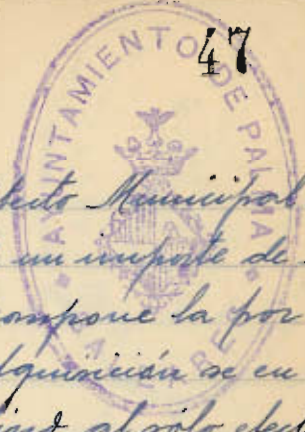 47
AYUNTAMIENTO DE PALMA
Municipal
un importe de
compone la por
adquisición se en
al sólo efect